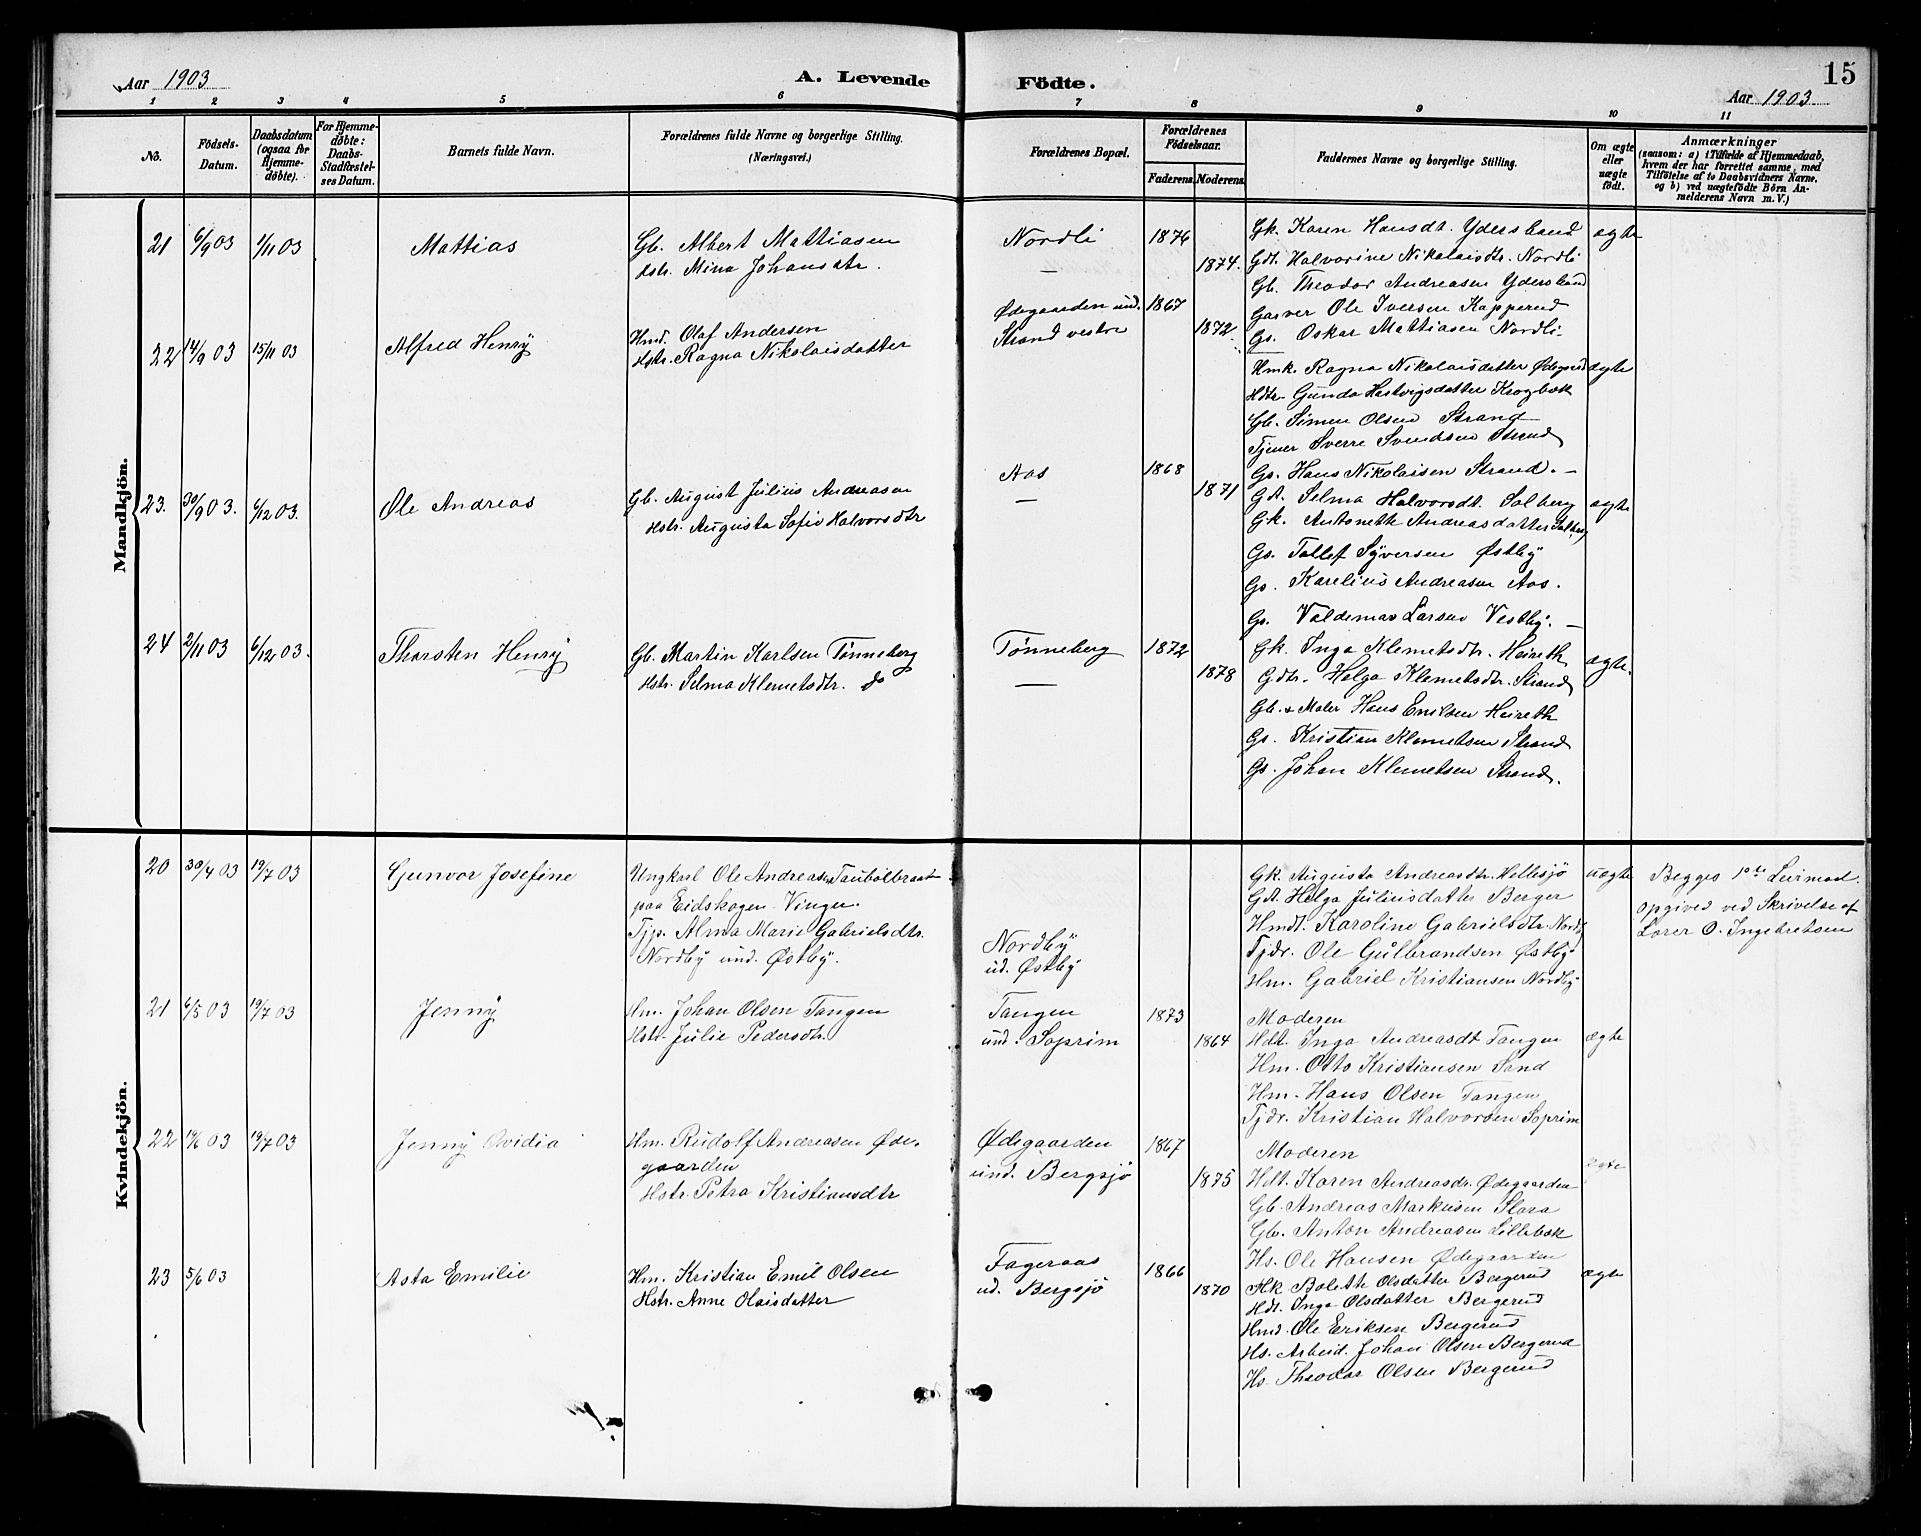 Aar 1903
A. Levende
Födte.
15
Aar 1903
1 2 3 4 5 6 7 8 9 10 11
No.
Födsels-
Datum.
Daabsdatum
(ogsaa for
Hjemme-
döbte).
For Hjemme-
döbte:
Daabs-
Stadfæstel-
ses Datum.
Barnets fulde Navn.
Forældrenes fulde Navne og borgerlige Stilling.
(Næringsvei.)
Forældrenes Bopæl.
Forældrenes
Födselsaar.
Faderens.
Moderens.
Faddernes Navne og borgerlige Stilling.
Om ægte
eller
uægte
födt.
Anmærkninger
(saasom: a) i Tilfælde af Hjemmedaab,
hvem der har forrettet samme, med
Tilföielse af to Daabsvidners Navne,
og b) ved uægtefödte Börn An-
melderens Navn m. V.)
Mandkjön.
21 6/9 03 1/11 03 Mattias
Gb. Albert Mattiasen
Hstr. Mina Johansdtr.
Nordli
—
1876
1874.
Gk. Karen Hansdt. Ydersland
Gdt. Halvorine Nikolaisdtr. Nordli
Gb. Theodor Andreasen Ydersland
Garver Ole Iversen Kapperud
Gs. Oskar Mattiasen Nordli
ægte
22 14/9 03 15/11 03 Alfred Henry
Hmd. Olaf Andersen
Hstr. Ragna Nikolaisdatter
Ødegaarden und.
Strand vestre
1867
1872
Hmk. Ragna Nikolaisdatter Ødegård
Hdtr. Gunda Hartvigsdatter Krogbæk
Gb. Simen Olsen Strand
Tjener Sverre Svendsen Strand
Gs. Hans Nikolaisen Strand. —
ægte
23. 30/9 03. 6/12 03. Ole Andreas
Gb. August Julius Andreasen
Hstr. Augusta Sofie Halvorsdtr
Aas
—
1868
1871
Gdt. Selma Halvorsdt. Solberg
Gk. Antonette Andreasdatter Solberg
Gs. Tollef Syversen Østby
Gs. Karelius Andreasen Aas.
Gs. Valdemar Larsen Vestby. —
ægte
24 2/11 03 6/12 03. Thorsten Henry
Gb. Martin Karlsen Tønneberg
Hstr. Selma Klemetsdtr. do
Tønneberg
—
1872
1878
Gk. Inga Klemetsdtr. Heireth
Gdtr. Helga Klemetsdtr. Strand
Gb. & Maler Hans Emilsen Heireth
Gs. Kristian Klemetsen Strand
Gs. Johan Klemetsen Strand.
ægte.
Kvindekjön.
20 30/4 03 19/7 03 Gunvor Josefine
Ungkarl Ole Andreasen Taubolbraat
paa Eidskogen Vinger.
Tjp. Alma Marie Gabrielsdtr.
Nordby und. Østby.
Nordby
ud. Østby
Gk. Augusta Andreasdtr. Hillesjö
Gdt. Helga Juliusdatter Berger
Hmdt. Karoline Gabrielsdtr. Nordby
Tjdr. Ole Gulbrandsen Østby
Hm. Gabriel Kristiansen Nordby
uægte
Begges 1ste Leiermaal
opgived ved Skrivelse af
Lærer O. Ingebretsen
21 6/5 03 19/7 03 Jenny
Hm. Johan Olsen Tangen
Hstr. Julie Pedersdtr.
Tangen
und. Soprim
1873
1864
Moderen
Hdt. Inga Andreasdt Tangen
Hm. Otto Kristiansen Sand
Hm. Hans Olsen Tangen
Tjdr. Kristian Halvorsen Soprim
ægte
22 1/6 03 19/7 03 Jenny Ovidia
Hm. Rudolf Andreasen Øde-
gaarden
Hstr. Petra Kristiansdtr
Ødegaarden
und. Bergsjö
1867
1875
Moderen
Hdt. Karen Andreasdr. Ødegaarden
Gb. Andreas Markusen Slora
Gb. Anton Andreasen Lillebæk
Hs. Ole Hansen Ødegaarden
ægte
23 5/6 03 Asta Emilie
Hm. Kristian Emil Olsen
Hstr. Anne Olaisdatter
Fageraas
ud. Bergsjö
1866
1870
Hk Bolette Olsdatter Bergerud
Hdt. Inga Olsdatter Bergerud
Hmd. Ole Eriksen Bergerud
Hs. Arbeid. Johan Olsen Bergerud
Hs. Theodor Olsen Bergerud
ægte